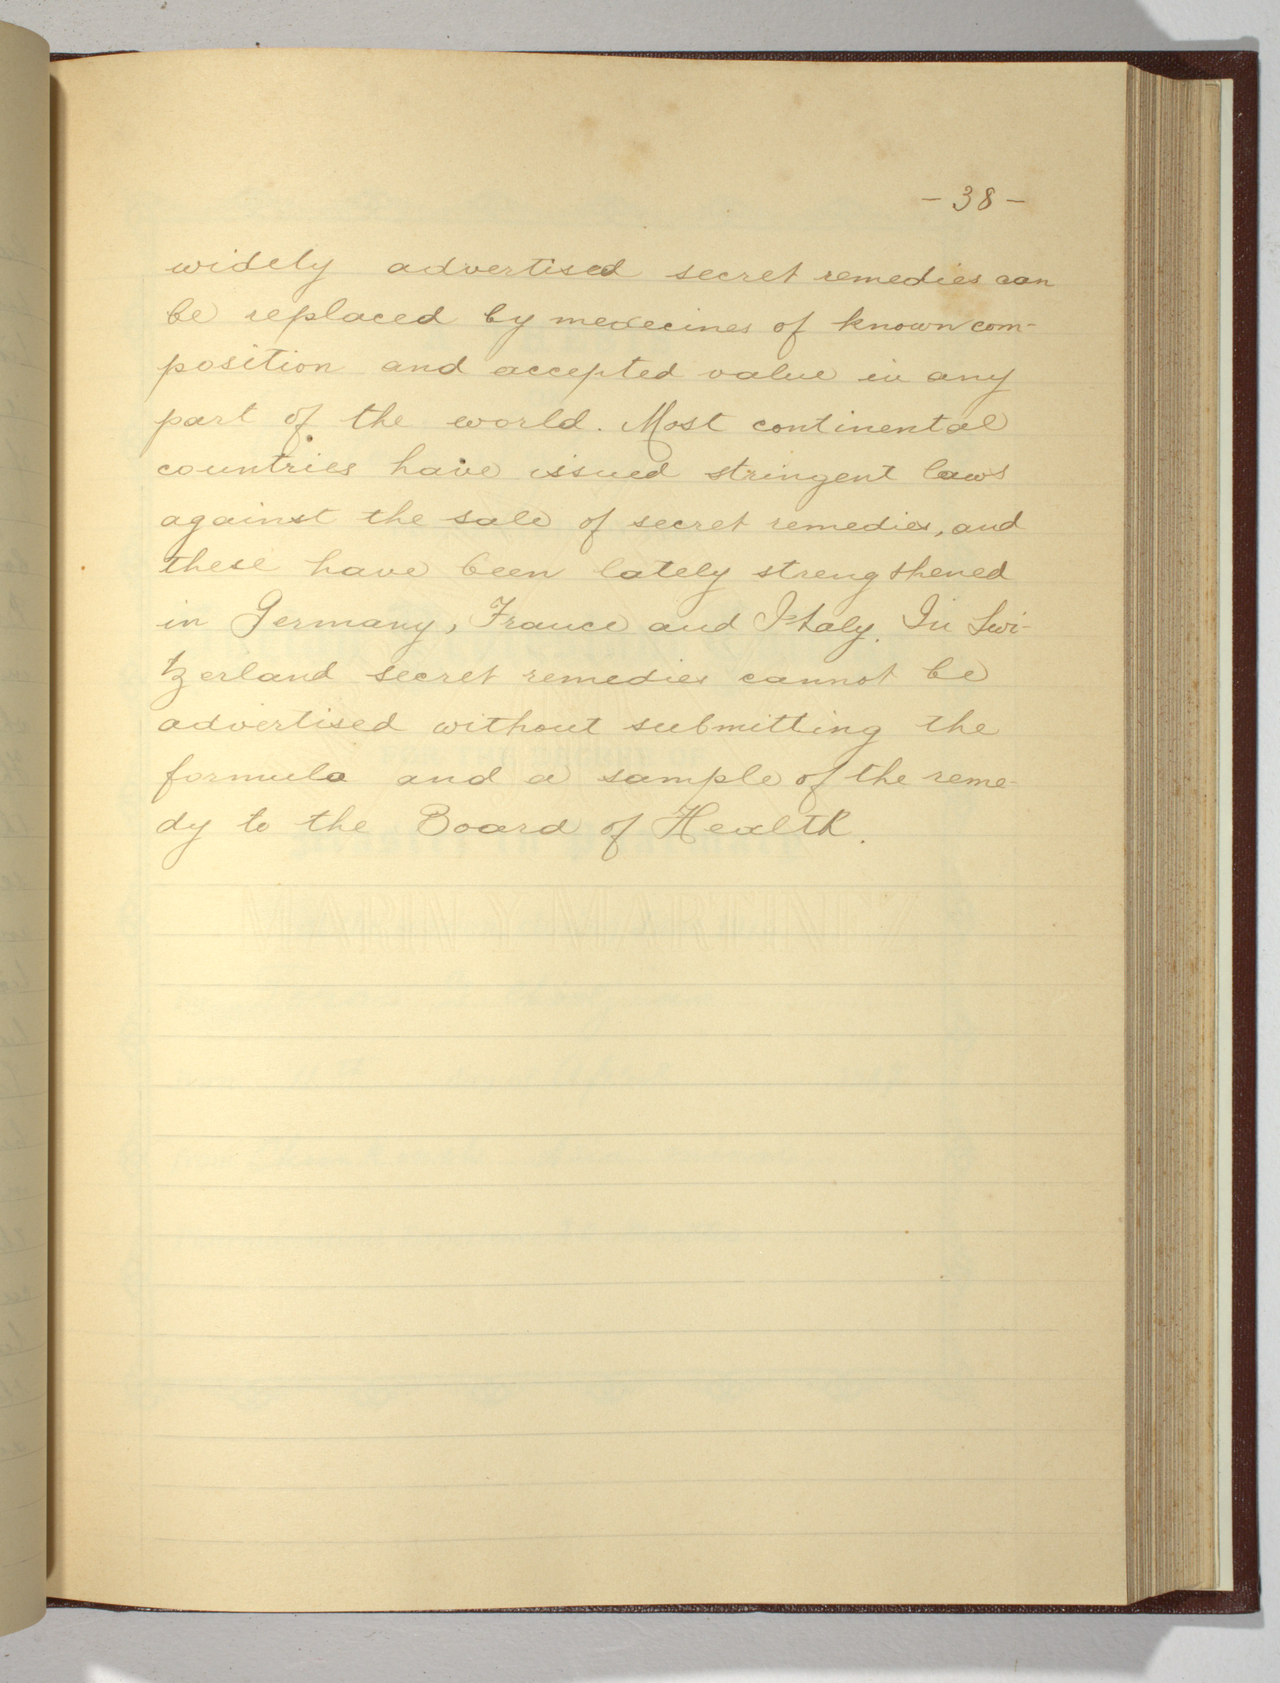 - 38 -
widely advertised secret remedies can
be replaced by medecines of known com-
position and accepted value in any
part of the world. Most continental
countries have issued stringent laws
against the sale of secret remedies, and
these have been lately strengthened
in Germany, France and Italy. In Swi-
tzerland secret remedies cannot be
advertised without submitting the
formula and a sample of the reme-
dy to the Board of Health.
MARIN Y MARTINEZ